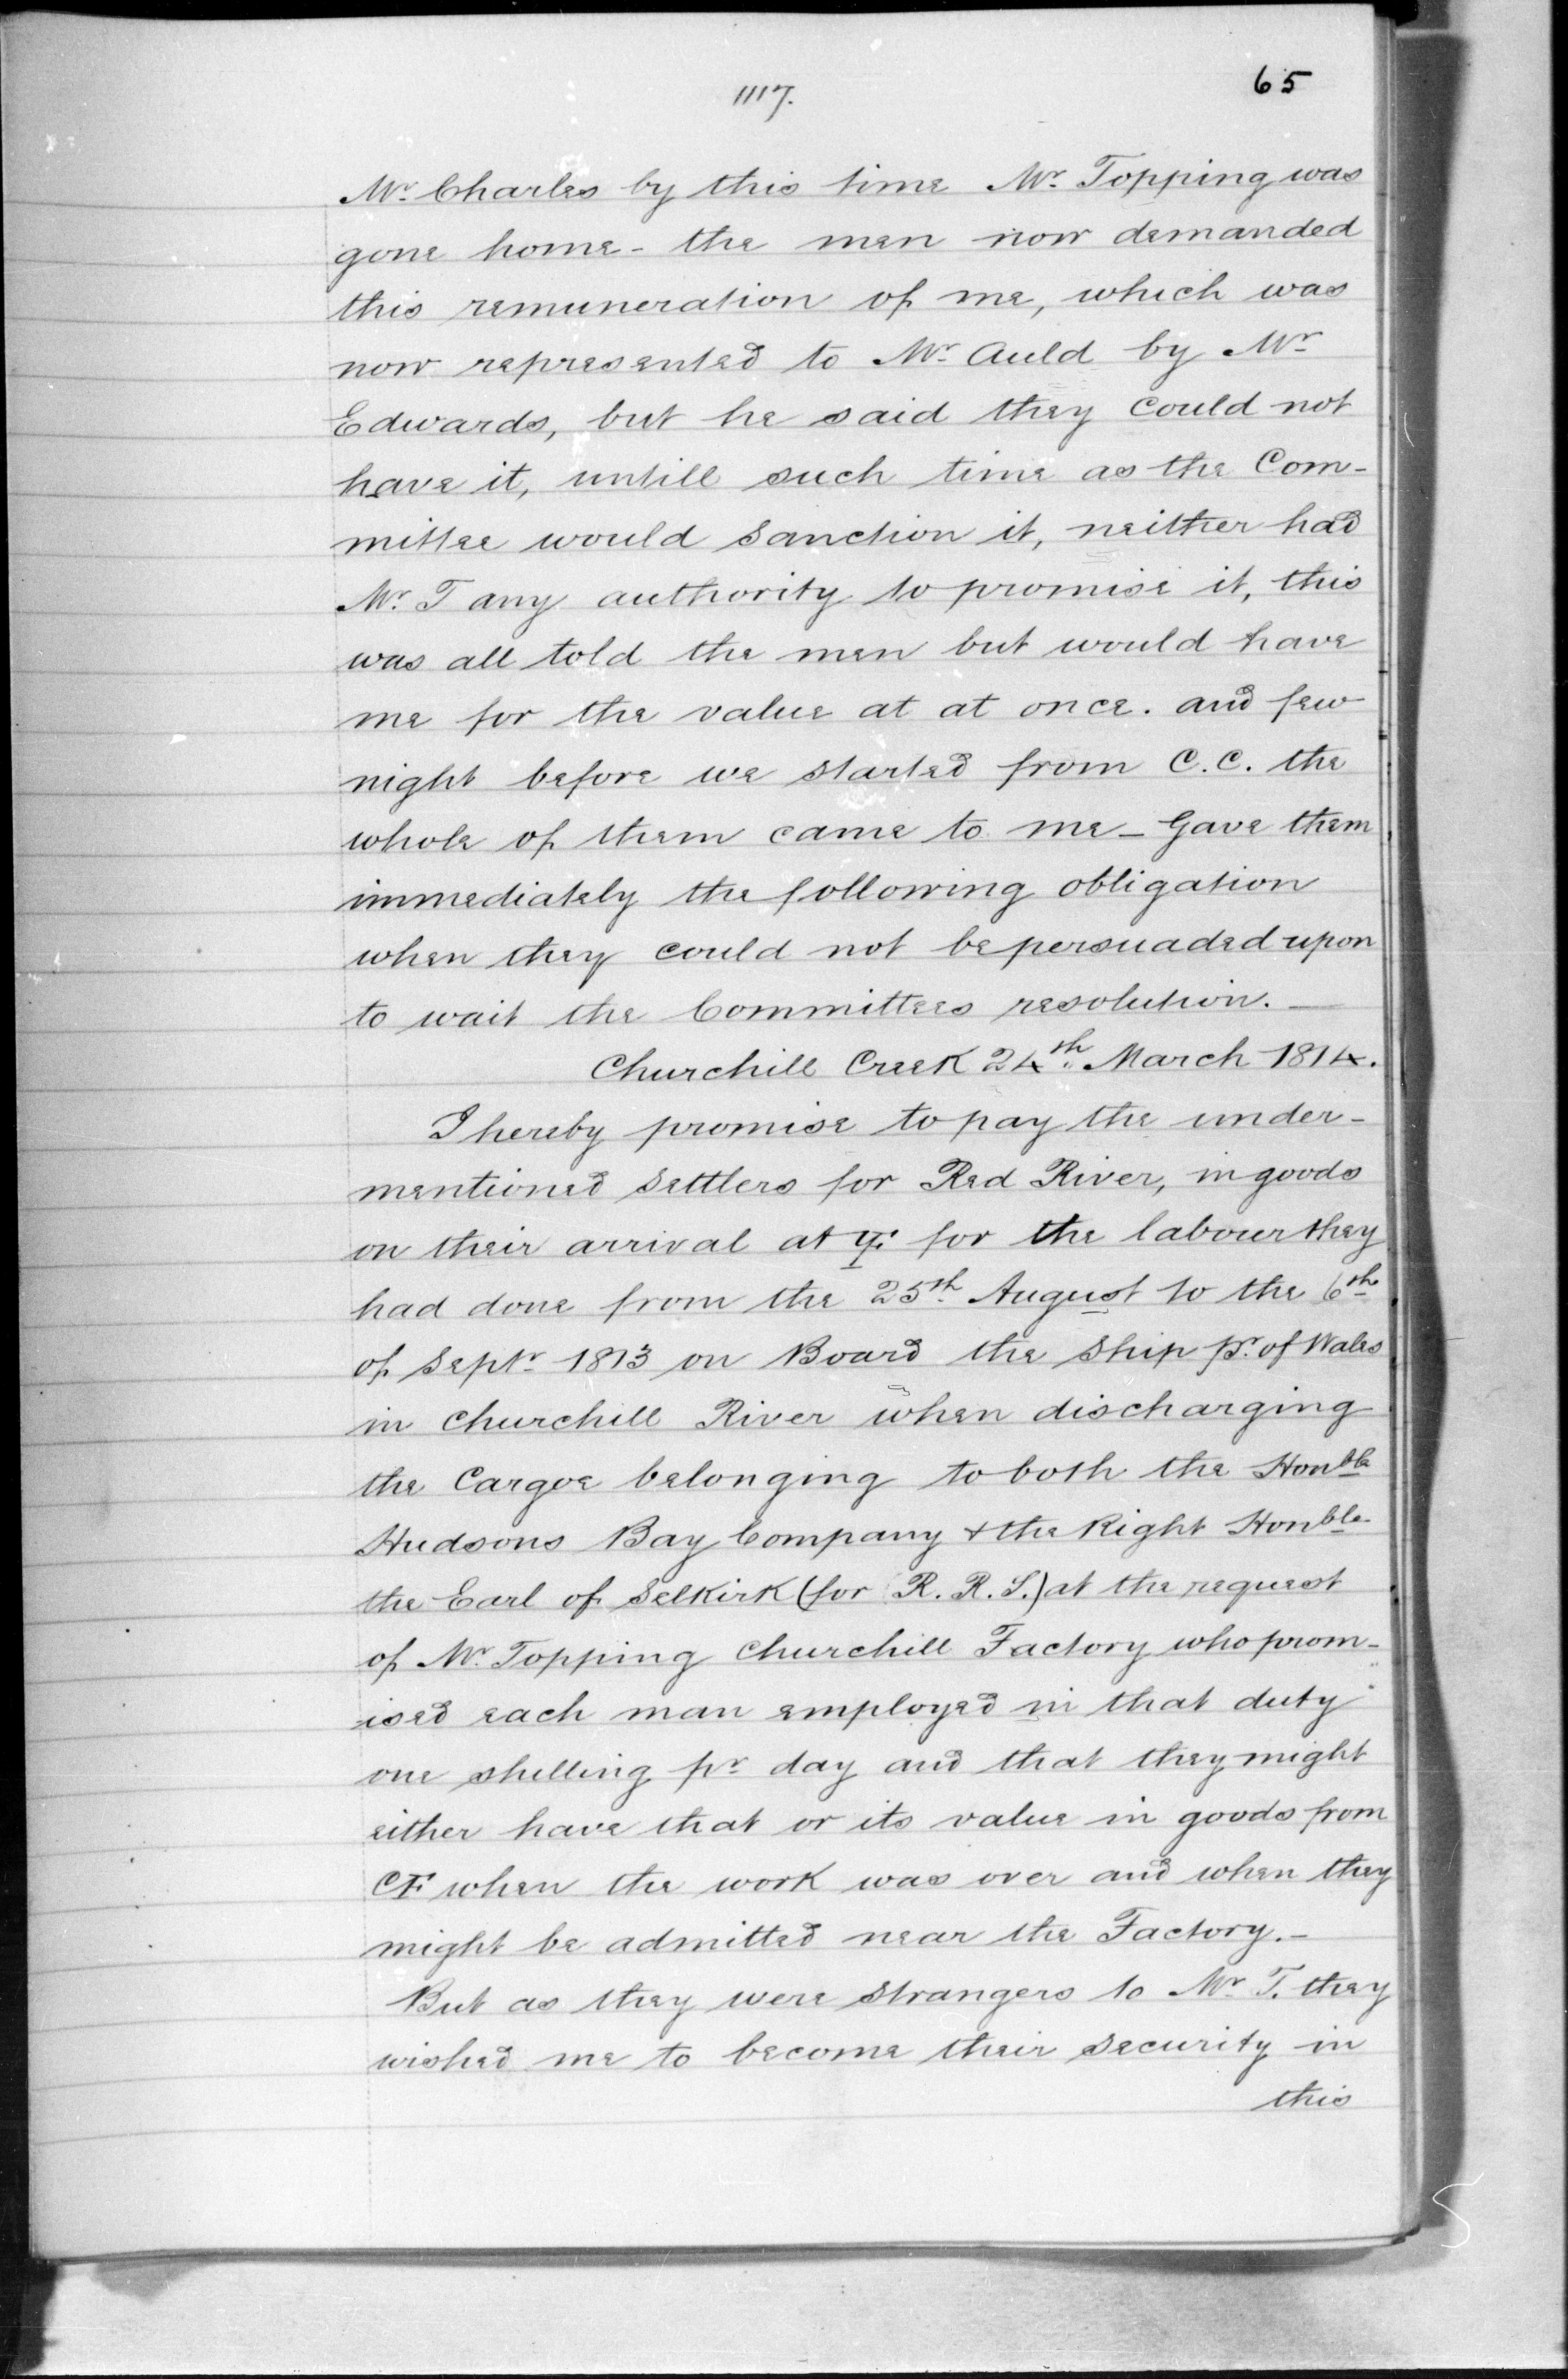 1117.
65
Mr. Charles by this time Mr. Topping was
gone home - the men now demanded
this remuneration of me, which was
now represented to Mr. Auld by Mr
Edwards, but he said they could not
have it, untill such time as the Com-
mittee would sanction it, neither had
Mr. T any authority to promise it, this
was all told the men but would have
me for the value at at once. and few
night before we started from C.C. the
whole of them came to me - Gave them
immediately the following obligation
when they could not be persuaded upon
to wait the Committees resolution. -
Churchill Creek 24th March 1814.
I hereby promise to pay the under-
mentioned settlers for Red River, in goods
on their arrival at for the labour they
had done from the 25th August to the 6th
of Septr 1813 on Board the Ship Pr. of Wales
in Churchill River when discharging
the Cargoe belonging to both the Honble
Hudsons Bay Company & the Right Honble
the Earl of Selkirk (for R. R. S.) at the request
of Mr. Topping Churchill Factory who prom-
ised each man employed in that duty
one shilling pr day and that they might
either have that or its value in goods from
CF when the work was over and when they
might be admitted near the Factory. -
But as they were strangers to Mr T. they
wished me to become their security in
this